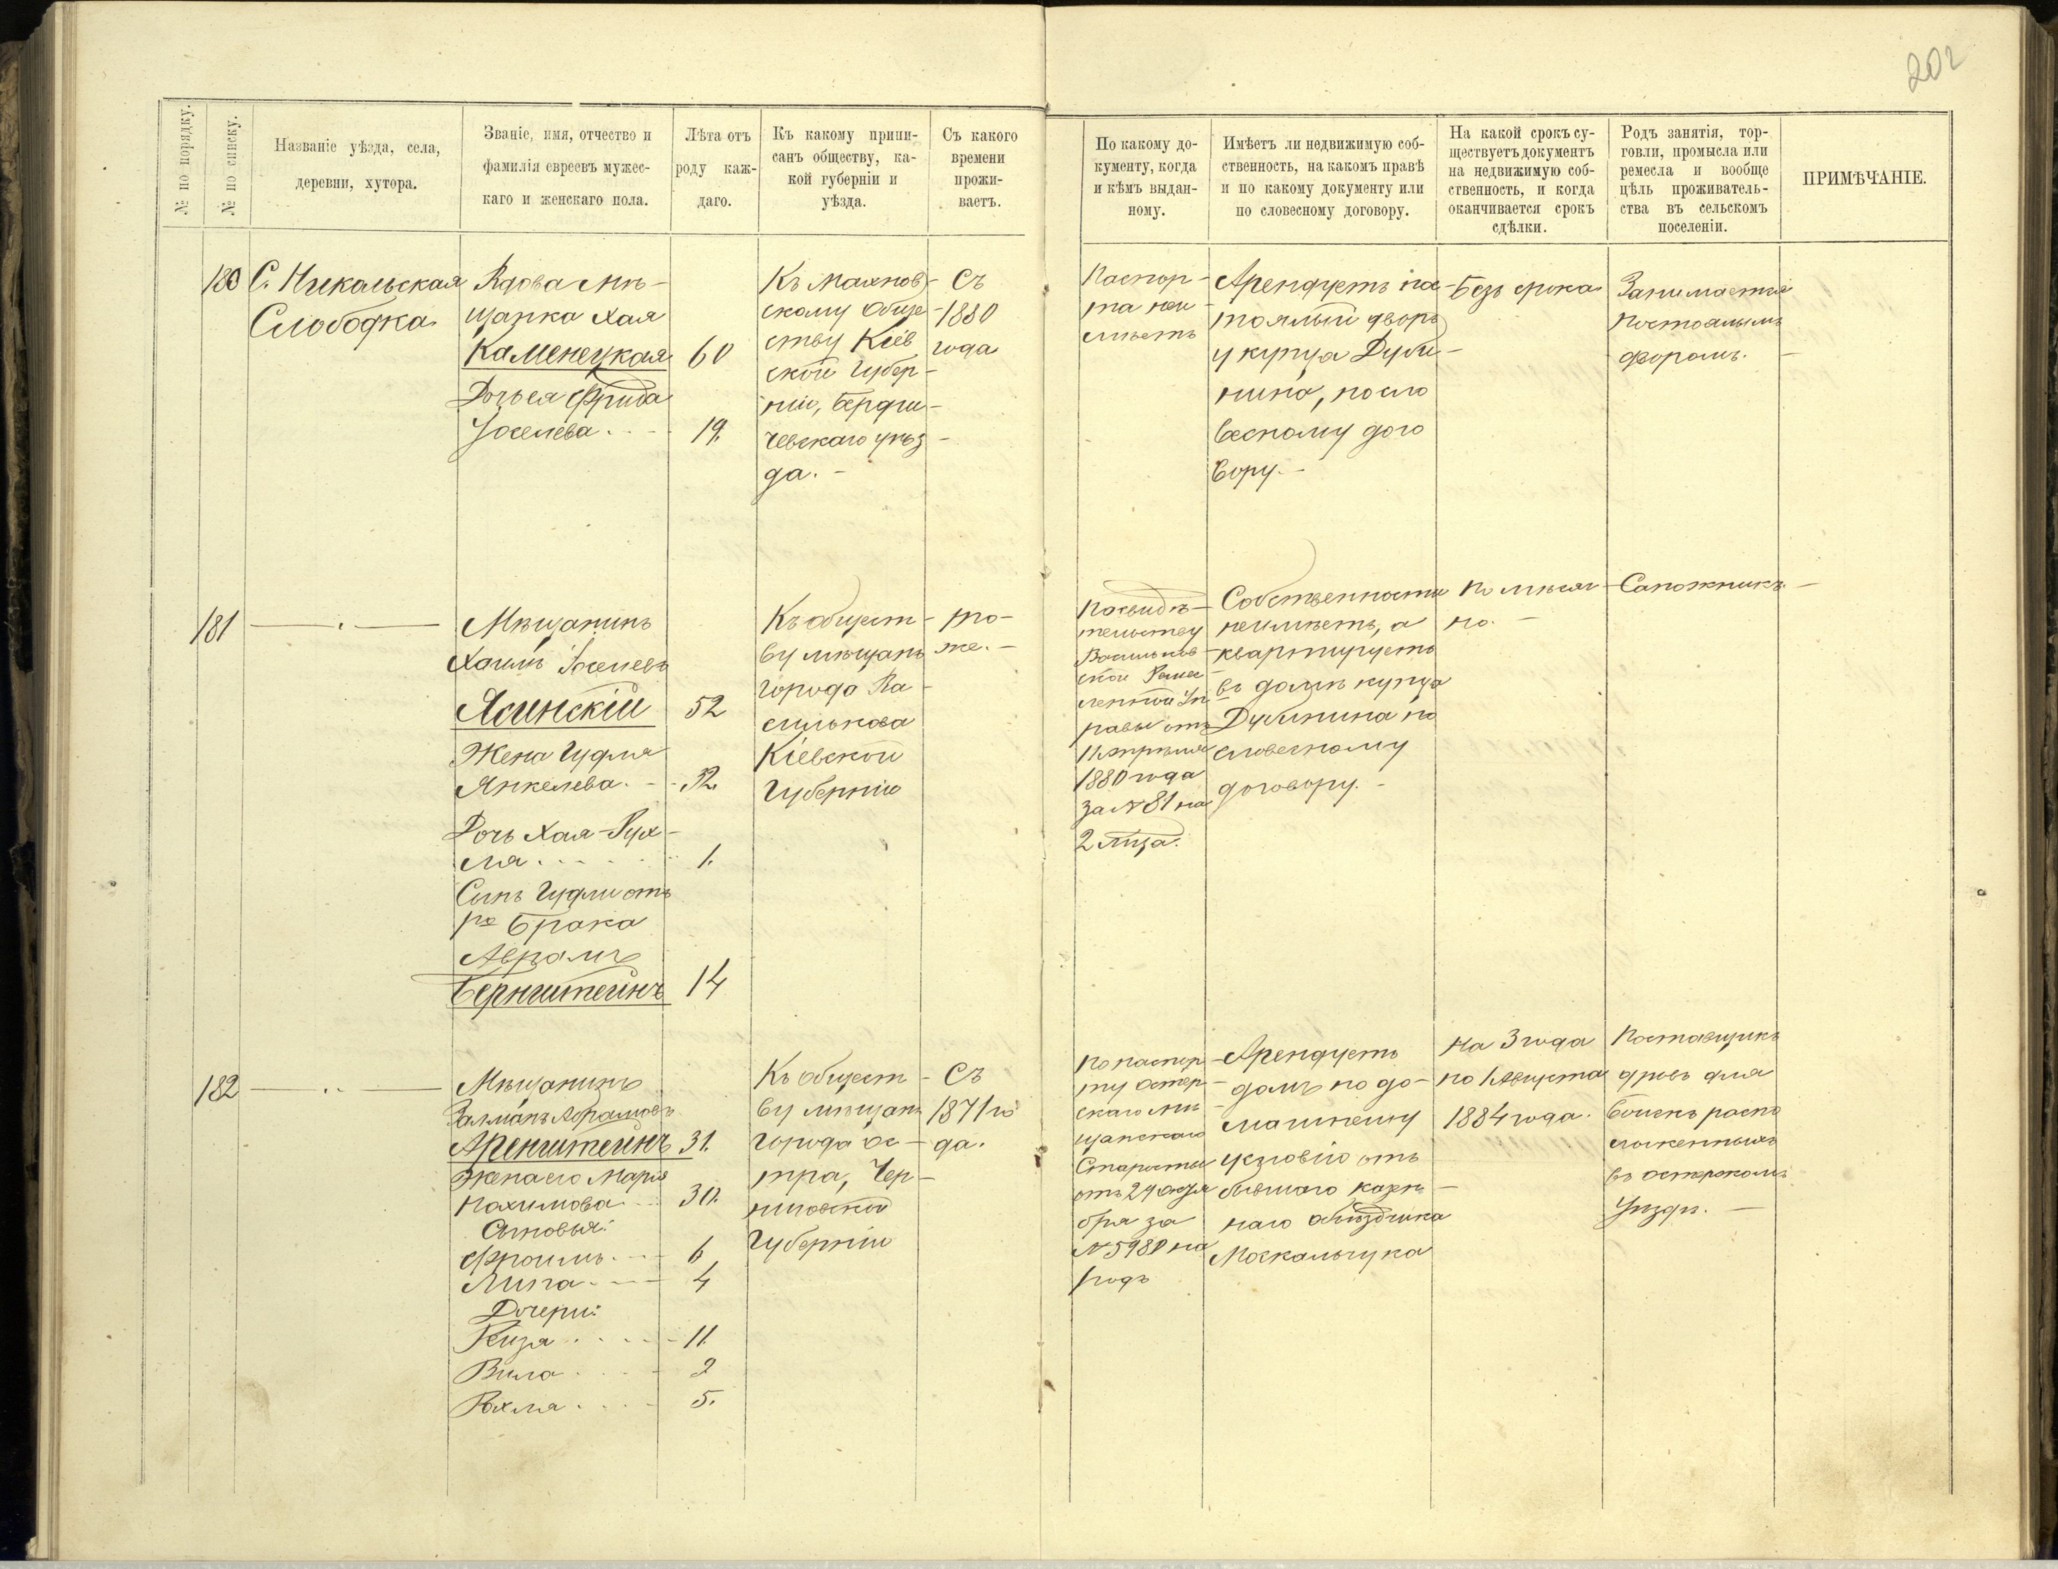 202
№ по порядку.
№ по списку.
Названіе уѣзда, села,
деревни, хутора.
Званіе, имя, отчество и
фамилія евреевъ мужес-
каго и женскаго пола.
Лѣта отъ
роду каж-
даго.
Къ какому припи-
санъ обществу, ка-
кой губерніи и
уѣзда.
Съ какого
времени
прожи-
ваетъ.
По какому до-
кументу, когда
и кѣмъ выдан-
ному.
Имѣетъ ли недвижимую соб-
ственность, на какомъ правѣ
и по какому документу или
по словесному договору.
На какой срокъ су-
ществуетъ документъ
на недвижимую соб-
ственность, и когда
оканчивается срокъ
сдѣлки.
Родъ занятія, тор-
говли, промысла или
ремесла и вообще
цѣль проживатель-
ства въ сельскомъ
поселеніи.
ПРИМѢЧАНІЕ.
180
С. Никольская
Слободка
Вдова мѣ-
щанка Хая
Каменецкая 60
Дочь ея Фрида
Іоселева 19.
Къ Махнов-
скому обще-
ству Кіев
ской Губер-
ніи, Бердич-
чевскаго уѣз-
да.
Съ
1880
года
Паспор-
та неи-
мѣетъ
Арендуетъ по-
стоялый дворъ
у купца Дуби-
нина, по сло
весному дого
вору.
Безъ срока
Занимается
постоялымъ
дворомъ.
181
Мѣщанинъ
Хаимъ Іоселевъ
Ясинскій 52
Жена Гудля
Янкелева. 32.
Дочь Хая-Рух-
ля 1.
Сынъ Гудли отъ
1го брака
Аврамъ
Бернштейнъ 14
Къ общест-
ву мѣщанъ
города Ва-
силькова
Кіевской
Губерніи
то-
же.
По свидѣ-
тельству
Васильков-
ской Ремес
ленной Уп
равы отъ
апрѣля
1880 года
за № 81 на
2 лица.
Собственности
неимѣетъ, а
квартируетъ
въ домѣ купца
Дубинина по
словесному
договору.
Помѣсяч
но.
Сапожникъ.
182
Мѣщанинъ
Залманъ Абрамовъ
Аренштейнъ 31.
Жена его Марія
Нохимова 30.
Сыновья:
Фроимъ 6
Липа 4
Дочери:
Рейзя 11
Вила 2
Рохля 5.
Къ общест-
ву мѣщанъ
города Ос-
тра, Чер-
ниговской
Губерніи
Съ
1871 го
да.
По паспор
ту Остер-
скаго мѣ-
щанскаго
Старосты
отъ 24 октя
бря за
№ 5980 на
1 годъ
Арендуетъ
домъ по до-
машнему
условію отъ
бывшаго казен-
наго объѣздчика
Москальчука
На 3 года
по 1 Августа
1884 года.
Поставщикъ
дровъ для
войскъ распо
ложенныхъ
въ Остерскомъ
Уѣздѣ.